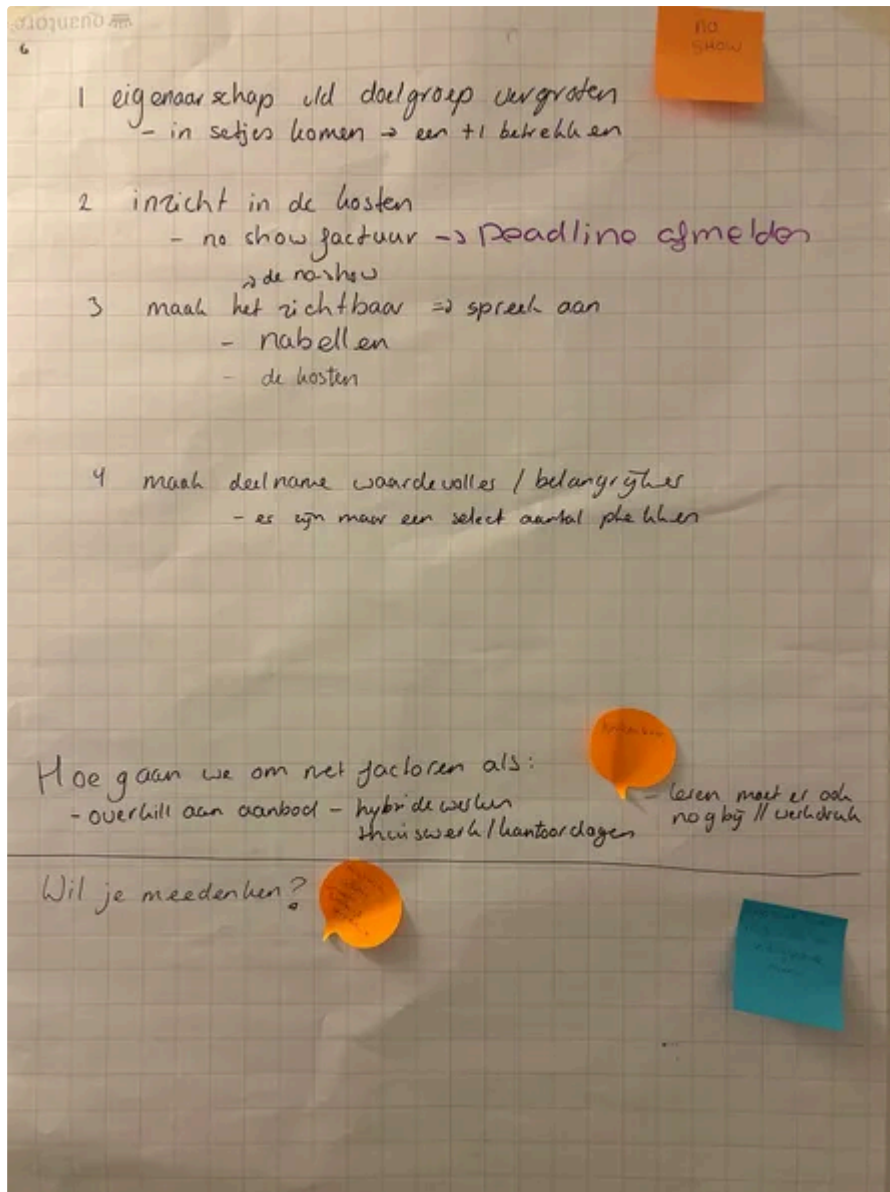 quantore
6
no
SHOW
1 eigenaarschap v/d doelgroep vergroten
- in setjes komen → een +1 betrekken
2 inzicht in de kosten
- no show factuur → Deadline afmelden
→ de no-show
3 maak het zichtbaar => spreek aan
- nabellen
- de kosten
4 maak deelname waardevoller / belangrijker
- er zijn maar een select aantal plekken
Hoe gaan we om met factoren als:
- overkill aan aanbod - hybride werken
thuiswerk/kantoordagen
- leren moet er ook
nog bij // werkdruk
Wil je meedenken?